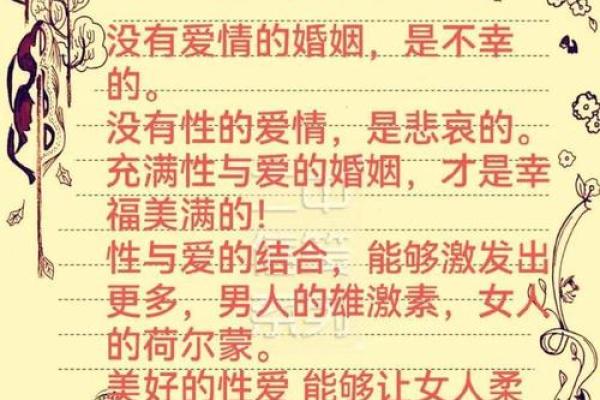 没有爱情的婚姻，是不幸
的。
没有性的爱情，是悲哀的。
充满性与爱的婚姻，才是幸
福美满的!
性与爱的结合，能够激发出
更多，男人的雄激素，女人
的荷尔蒙。
美好的性爱 能够让女人柔